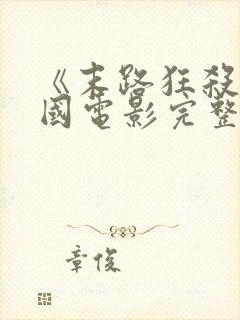 《末路狂殺
國電影完整
章俊